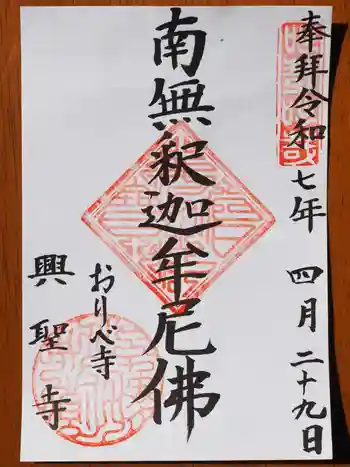 奉拝令和七年四月二十九日
南無釈迦牟尼佛
おりべ寺
興聖寺